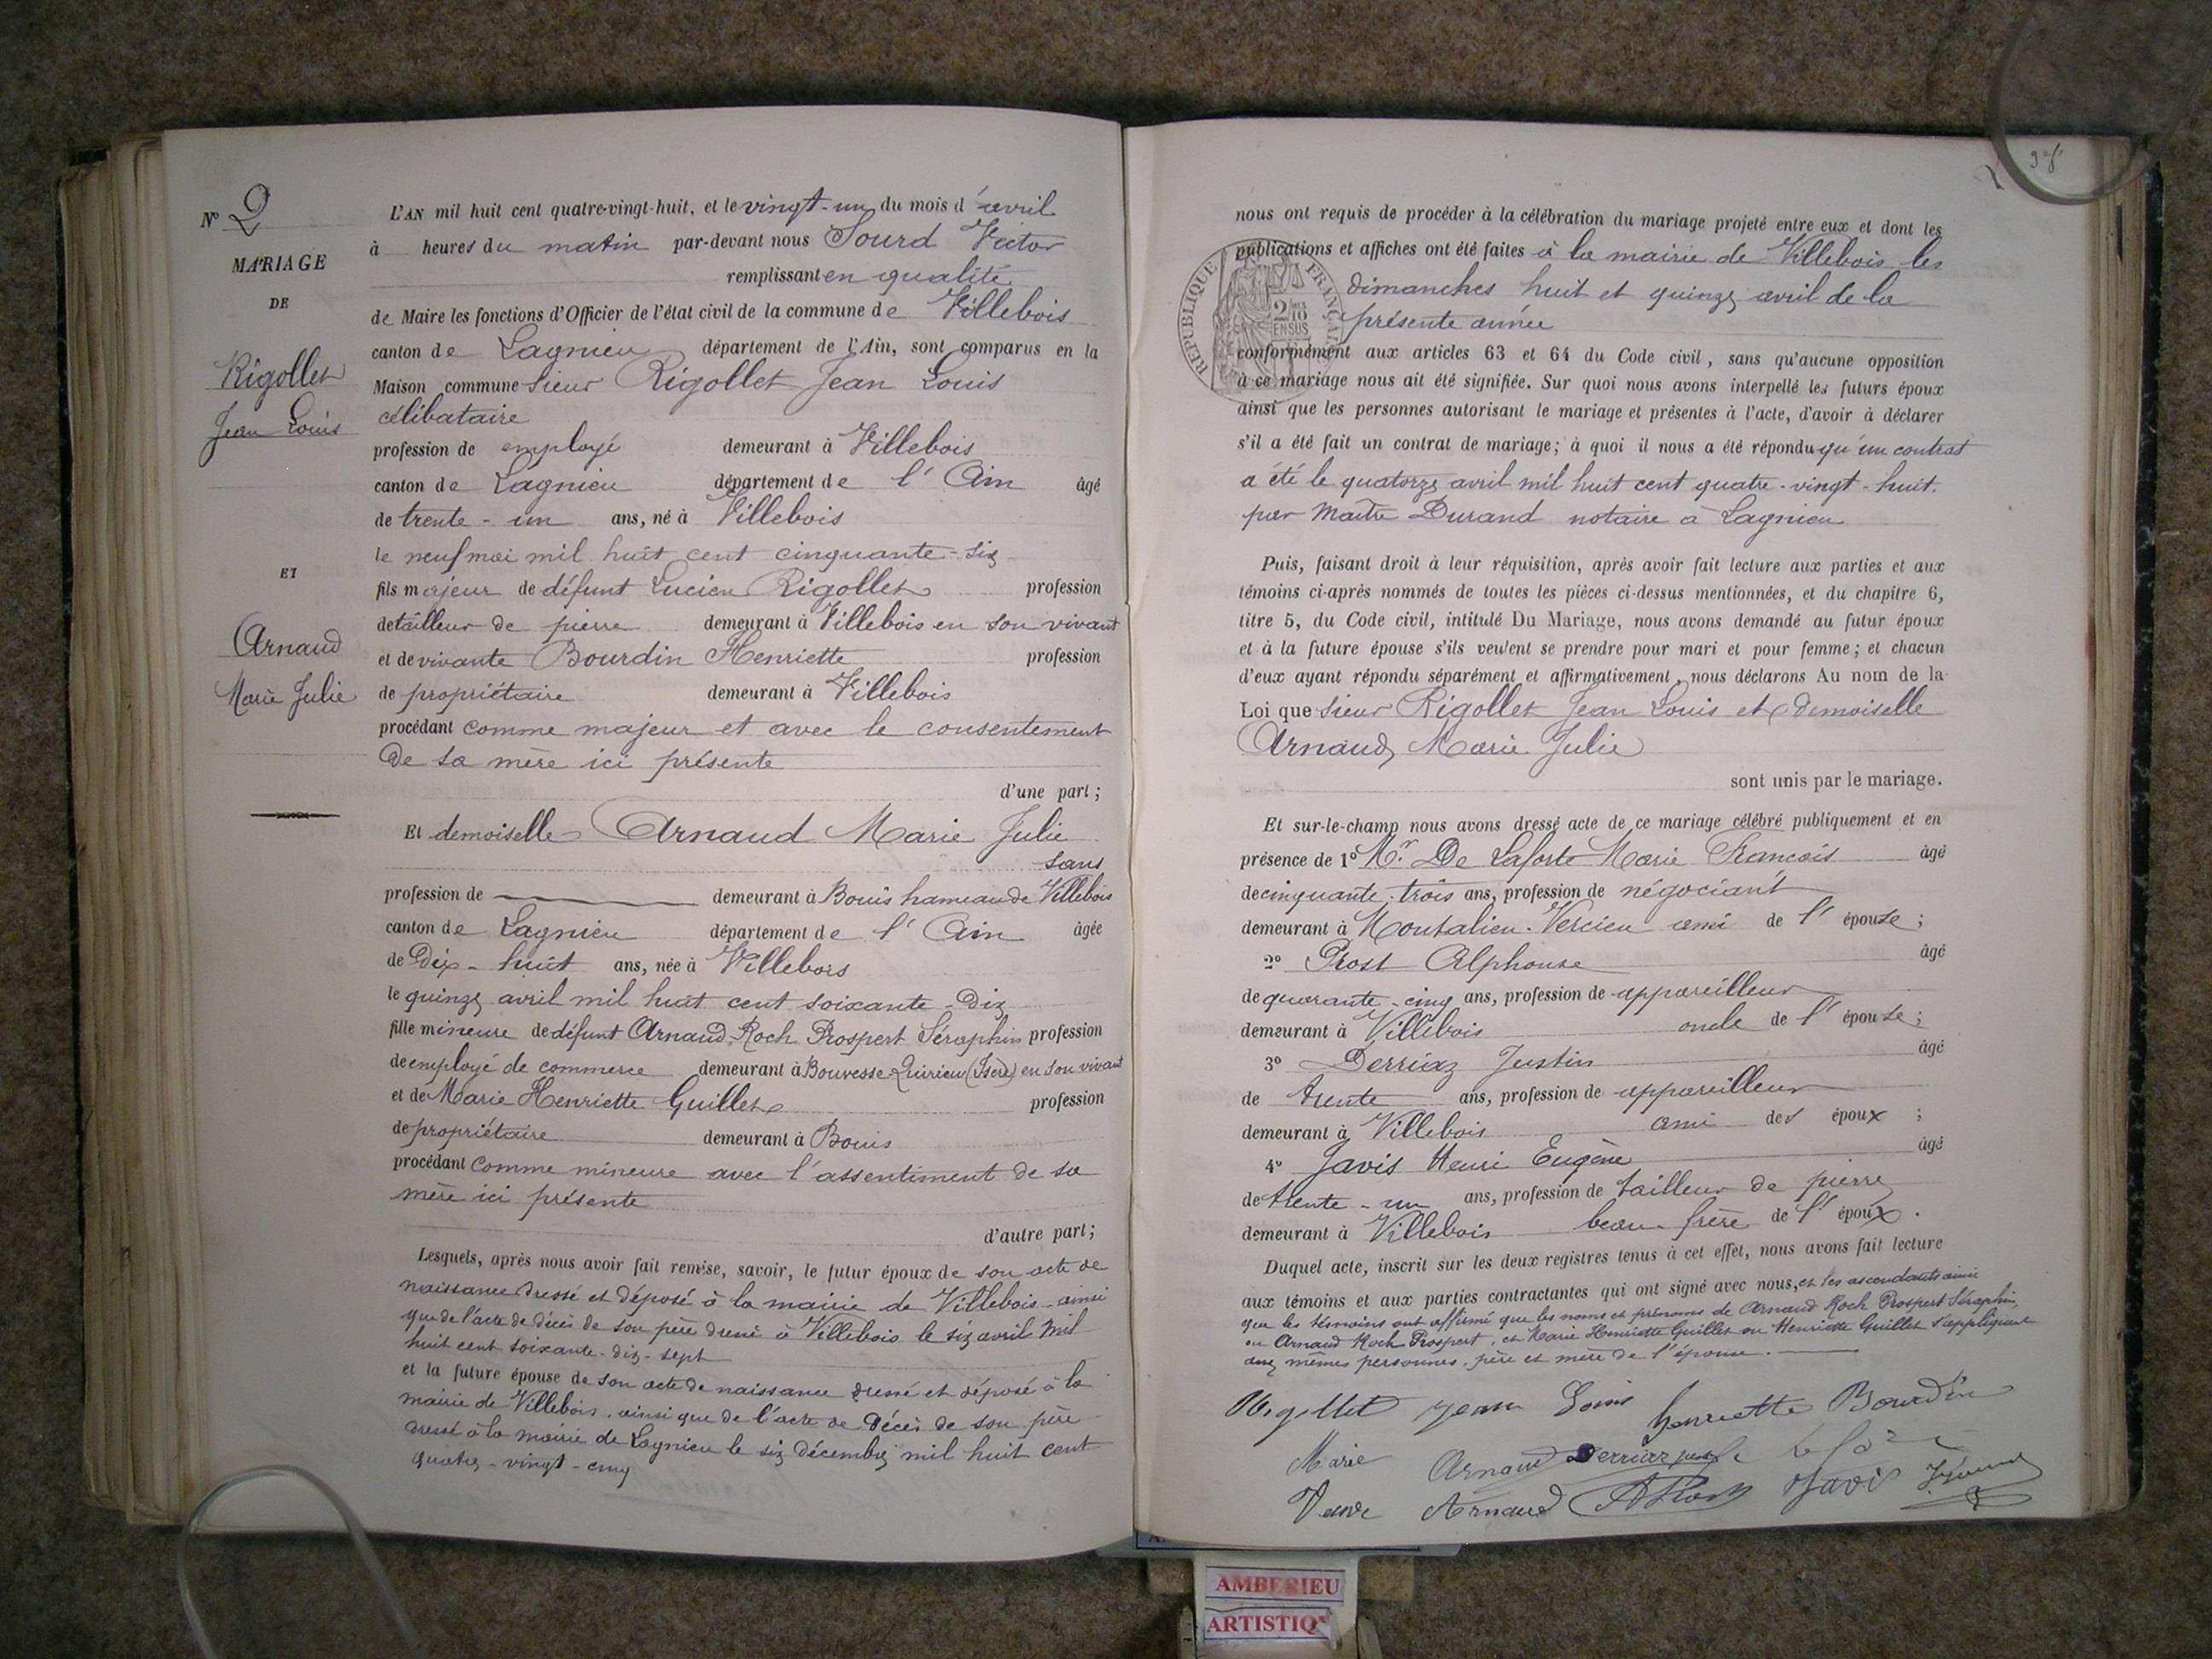 N° 2
MARIAGE
DE
Rigollet
Jean Louis
ET
Arnaud
Marie Julie
L'AN mil huit cent quatre-vingt-huit, et le vingt-un du mois d'avril
à heures du matin par-devant nous Sourd Victor
remplissant en qualité
de Maire les fonctions d'Officier de l'état civil de la commune de Villebois
canton de Lagnieu département de l'Ain, sont comparus en la
Maison commune sieur Rigollet Jean Louis
célibataire
profession de employé demeurant à Villebois
canton de Lagnieu département de l'Ain âgé
de trente-un ans, né à Villebois
le neuf mai mil huit cent cinquante-six
fils majeur de défunt Lucien Rigollet profession
de tailleur de pierre demeurant à Villebois en son vivant
et de vivante Bourdin Henriette profession
de propriétaire demeurant à Villebois
procédant comme majeur et avec le consentement
de sa mère ici présente
d'une part;
Et demoiselle Arnaud Marie Julie
sans
profession de demeurant à Bouis hameau de Villebois
canton de Lagnieu département de l'Ain âgée
de Dix-huit ans, née à Villebois
le quinze avril mil huit cent soixante-dix
fille mineure de défunt Arnaud Roch Prospert Séraphin profession
de employé de commerce demeurant à Bouvesse-Quirieu (Isère) en son vivant
et de Marie Henriette Guillet profession
de propriétaire demeurant à Bouis
procédant comme mineure avec l'assentiment de sa
mère ici présente
d'autre part;
Lesquels, après nous avoir fait remise, savoir, le futur époux de son acte de
naissance dressé et déposé à la mairie de Villebois ainsi
que de l'acte de décès de son père dressé à Villebois le six avril mil
huit cent soixante-dix-sept
et la future épouse de son acte de naissance dressé et déposé à la
mairie de Villebois, ainsi que de l'acte de décès de son père
dressé à la mairie de Lagnieu le six décembre mil huit cent
quatre-vingt-cinq
nous ont requis de procéder à la célébration du mariage projeté entre eux et dont les
publications et affiches ont été faites à la mairie de Villebois les
dimanches huit et quinze avril de la
présente année
RÉPUBLIQUE FRANÇAISE
2/10
EN SUS
conformément aux articles 63 et 64 du Code civil, sans qu'aucune opposition
à ce mariage nous ait été signifiée. Sur quoi nous avons interpellé les futurs époux
ainsi que les personnes autorisant le mariage et présentes à l'acte, d'avoir à déclarer
s'il a été fait un contrat de mariage; à quoi il nous a été répondu qu'un contrat
a été le quatorze avril mil huit cent quatre-vingt-huit.
par Maître Durand notaire à Lagnieu
Puis, faisant droit à leur réquisition, après avoir fait lecture aux parties et aux
témoins ci-après nommés de toutes les pièces ci-dessus mentionnées, et du chapitre 6,
titre 5, du Code civil, intitulé Du Mariage, nous avons demandé au futur époux
et à la future épouse s'ils veulent se prendre pour mari et pour femme; et chacun
d'eux ayant répondu séparément et affirmativement, nous déclarons Au nom de la
Loi que sieur Rigollet Jean Louis et demoiselle
Arnaud Marie Julie
sont unis par le mariage.
Et sur-le-champ nous avons dressé acte de ce mariage célébré publiquement et en
présence de 1° Mr De Laforte Marie François âgé
de cinquante-trois ans, profession de négociant
demeurant à Montalieu-Vercieu ami de l'épouse;
2° Prost Alphonse âgé
de quarante-cinq ans, profession de appareilleur
demeurant à Villebois oncle de l'épouse;
3° Derriaz Justin âgé
de trente ans, profession de appareilleur
demeurant à Villebois ami des époux;
4° Javis Henri Eugène âgé
de trente-un ans, profession de tailleur de pierre
demeurant à Villebois beau-frère de l'époux.
Duquel acte, inscrit sur les deux registres tenus à cet effet, nous avons fait lecture
aux témoins et aux parties contractantes qui ont signé avec nous, et les ascendants ainsi
que les témoins ont affirmé que les noms et prénoms de Arnaud Roch Prospert Séraphin,
ou Arnaud Roch Prospert, et Marie Henriette Guillet ou Henriette Guillet s'appliquent
aux mêmes personnes, père et mère de l'épouse.
Rigollet Jean Louis Henriette Bourdin
Marie Arnaud Derriaz
Veuve Arnaud AProst Javis
AMBERIEU
ARTISTIQ